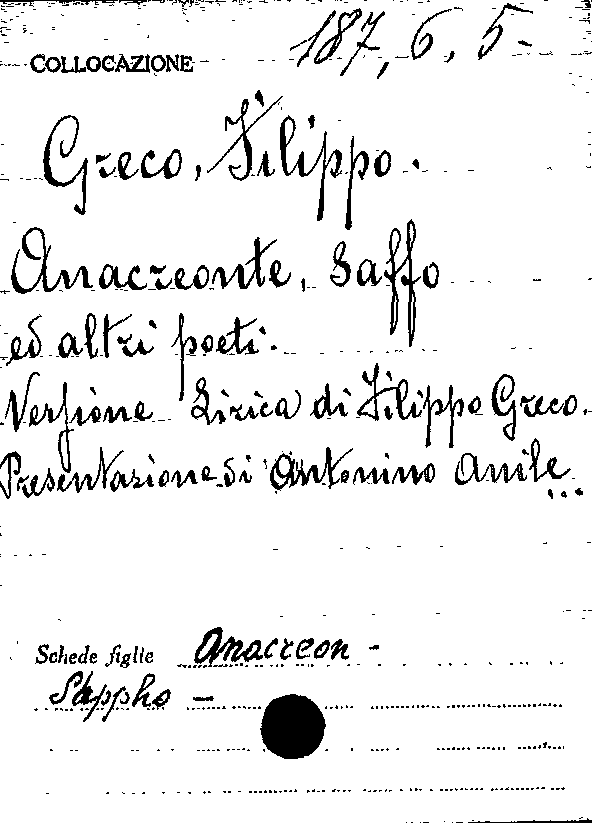 COLLOCAZIONE 187, 6, 5-
Greco, Filippo.
Anacreonte, Saffo
ed altri poeti.
Versione Lirica di Filippo Greco.
Presentazione di Antonino Anile
...
Schede figlie Anacreon -
Sappho -